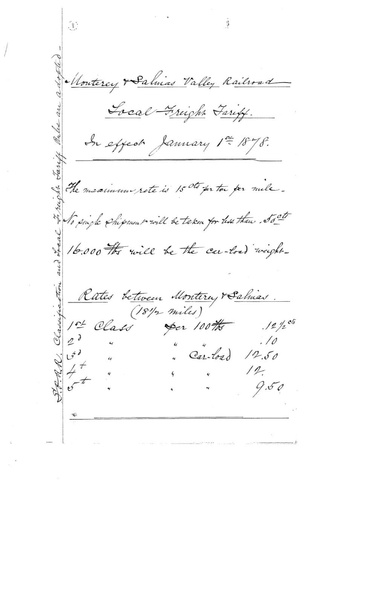 Monterey & Salinas Valley Railroad
Local Freight Tariff.
In effect January 1st 1878.
The maximum rate is 15 cts per ton per mile.
No single shipment will be taken for less than .50 cts
16.000 lbs will be the car-load weight.
Rates between Monterey & Salinas.
(18 1/2 miles)
1st Class per 100 lbs .12 1/2 cts
2d " " " .10
3d " " Car-load 12.50
4th " " " 12.
5th " " " 9.50
Classification and Local Freight Tariff Rules are adopted.